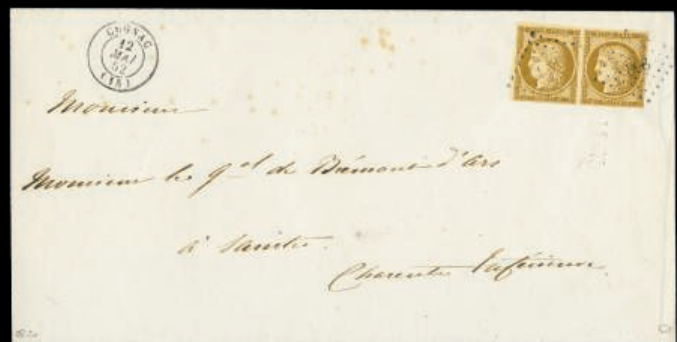 COGNAC
12
MAI
52
(15)
Monsieur
Monsieur le Gal de Brémont d'Ars
à Saintes.
Charente Inférieure